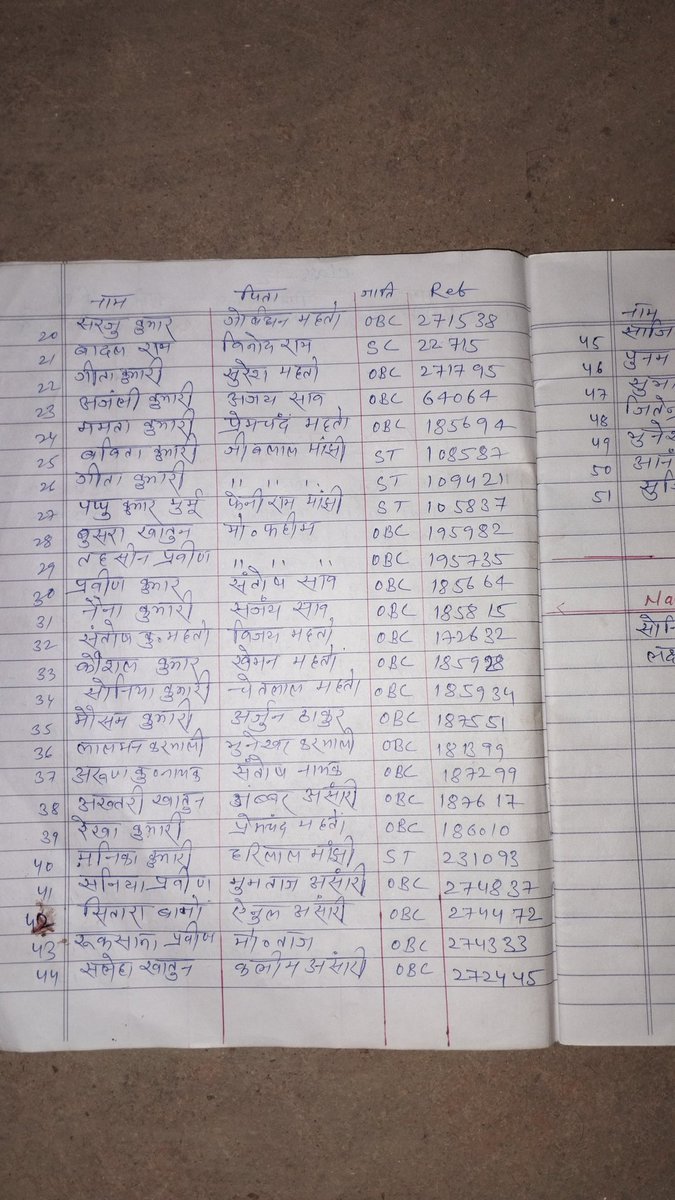 नाम पिता जाति Ref
20 सरजु कुमार गोवर्धन महतो OBC 271538
21 बादल राम विनोद राम SC 22715
22 गीता कुमारी सुरेश महतो OBC 271795
23 अंजली कुमारी अजय साव OBC 64064
24 ममता कुमारी प्रेमचंद महतो OBC 185694
25 बबिता कुमारी जीवलाल मांझी ST 108587
26 गीता कुमारी " " " " ST 109421
27 पप्पु कुमार मुर्मू फेनीराम मांझी ST 105837
28 बुसरा खातुन मो० फहीम OBC 195982
29 तहसीन प्रवीण " " " OBC 195735
30 प्रवीण कुमार संतोष साव OBC 185664
31 नैना कुमारी संजय साव OBC 185815
32 संतोष कु० महतो विजय महतो OBC 172632
33 कौशल कुमार खेमन महतो OBC 185928
34 सोनिया कुमारी चेतलाल महतो OBC 185934
35 मौसम कुमारी अर्जुन ठाकुर OBC 187551
36 लालमन करमाली मुनेश्वर करमाली OBC 181399
37 अरूण कु० नायक संतोष नायक OBC 187299
38 अख्तरी खातुन अंसारी OBC 187617
39 रेखा कुमारी प्रेमचंद महतो OBC 186010
40 मनिका कुमारी हरिलाल मांझी ST 231093
41 सनिया प्रवीण मुमताज अंसारी OBC 274837
42 सितारा बानो ऐनुल अंसारी OBC 274472
43 रूकसाना प्रवीण मो० ताज OBC 274333
44 सलेहा खातुन कलीम अंसारी OBC 272445
नाम
45
46 पुनम
47
48
49
50
51